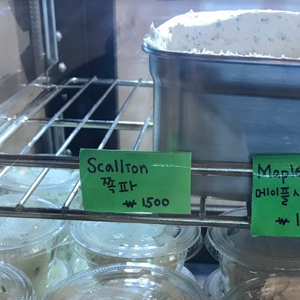 Scallion
쪽파
₩1500
Maple
메이플
₩1